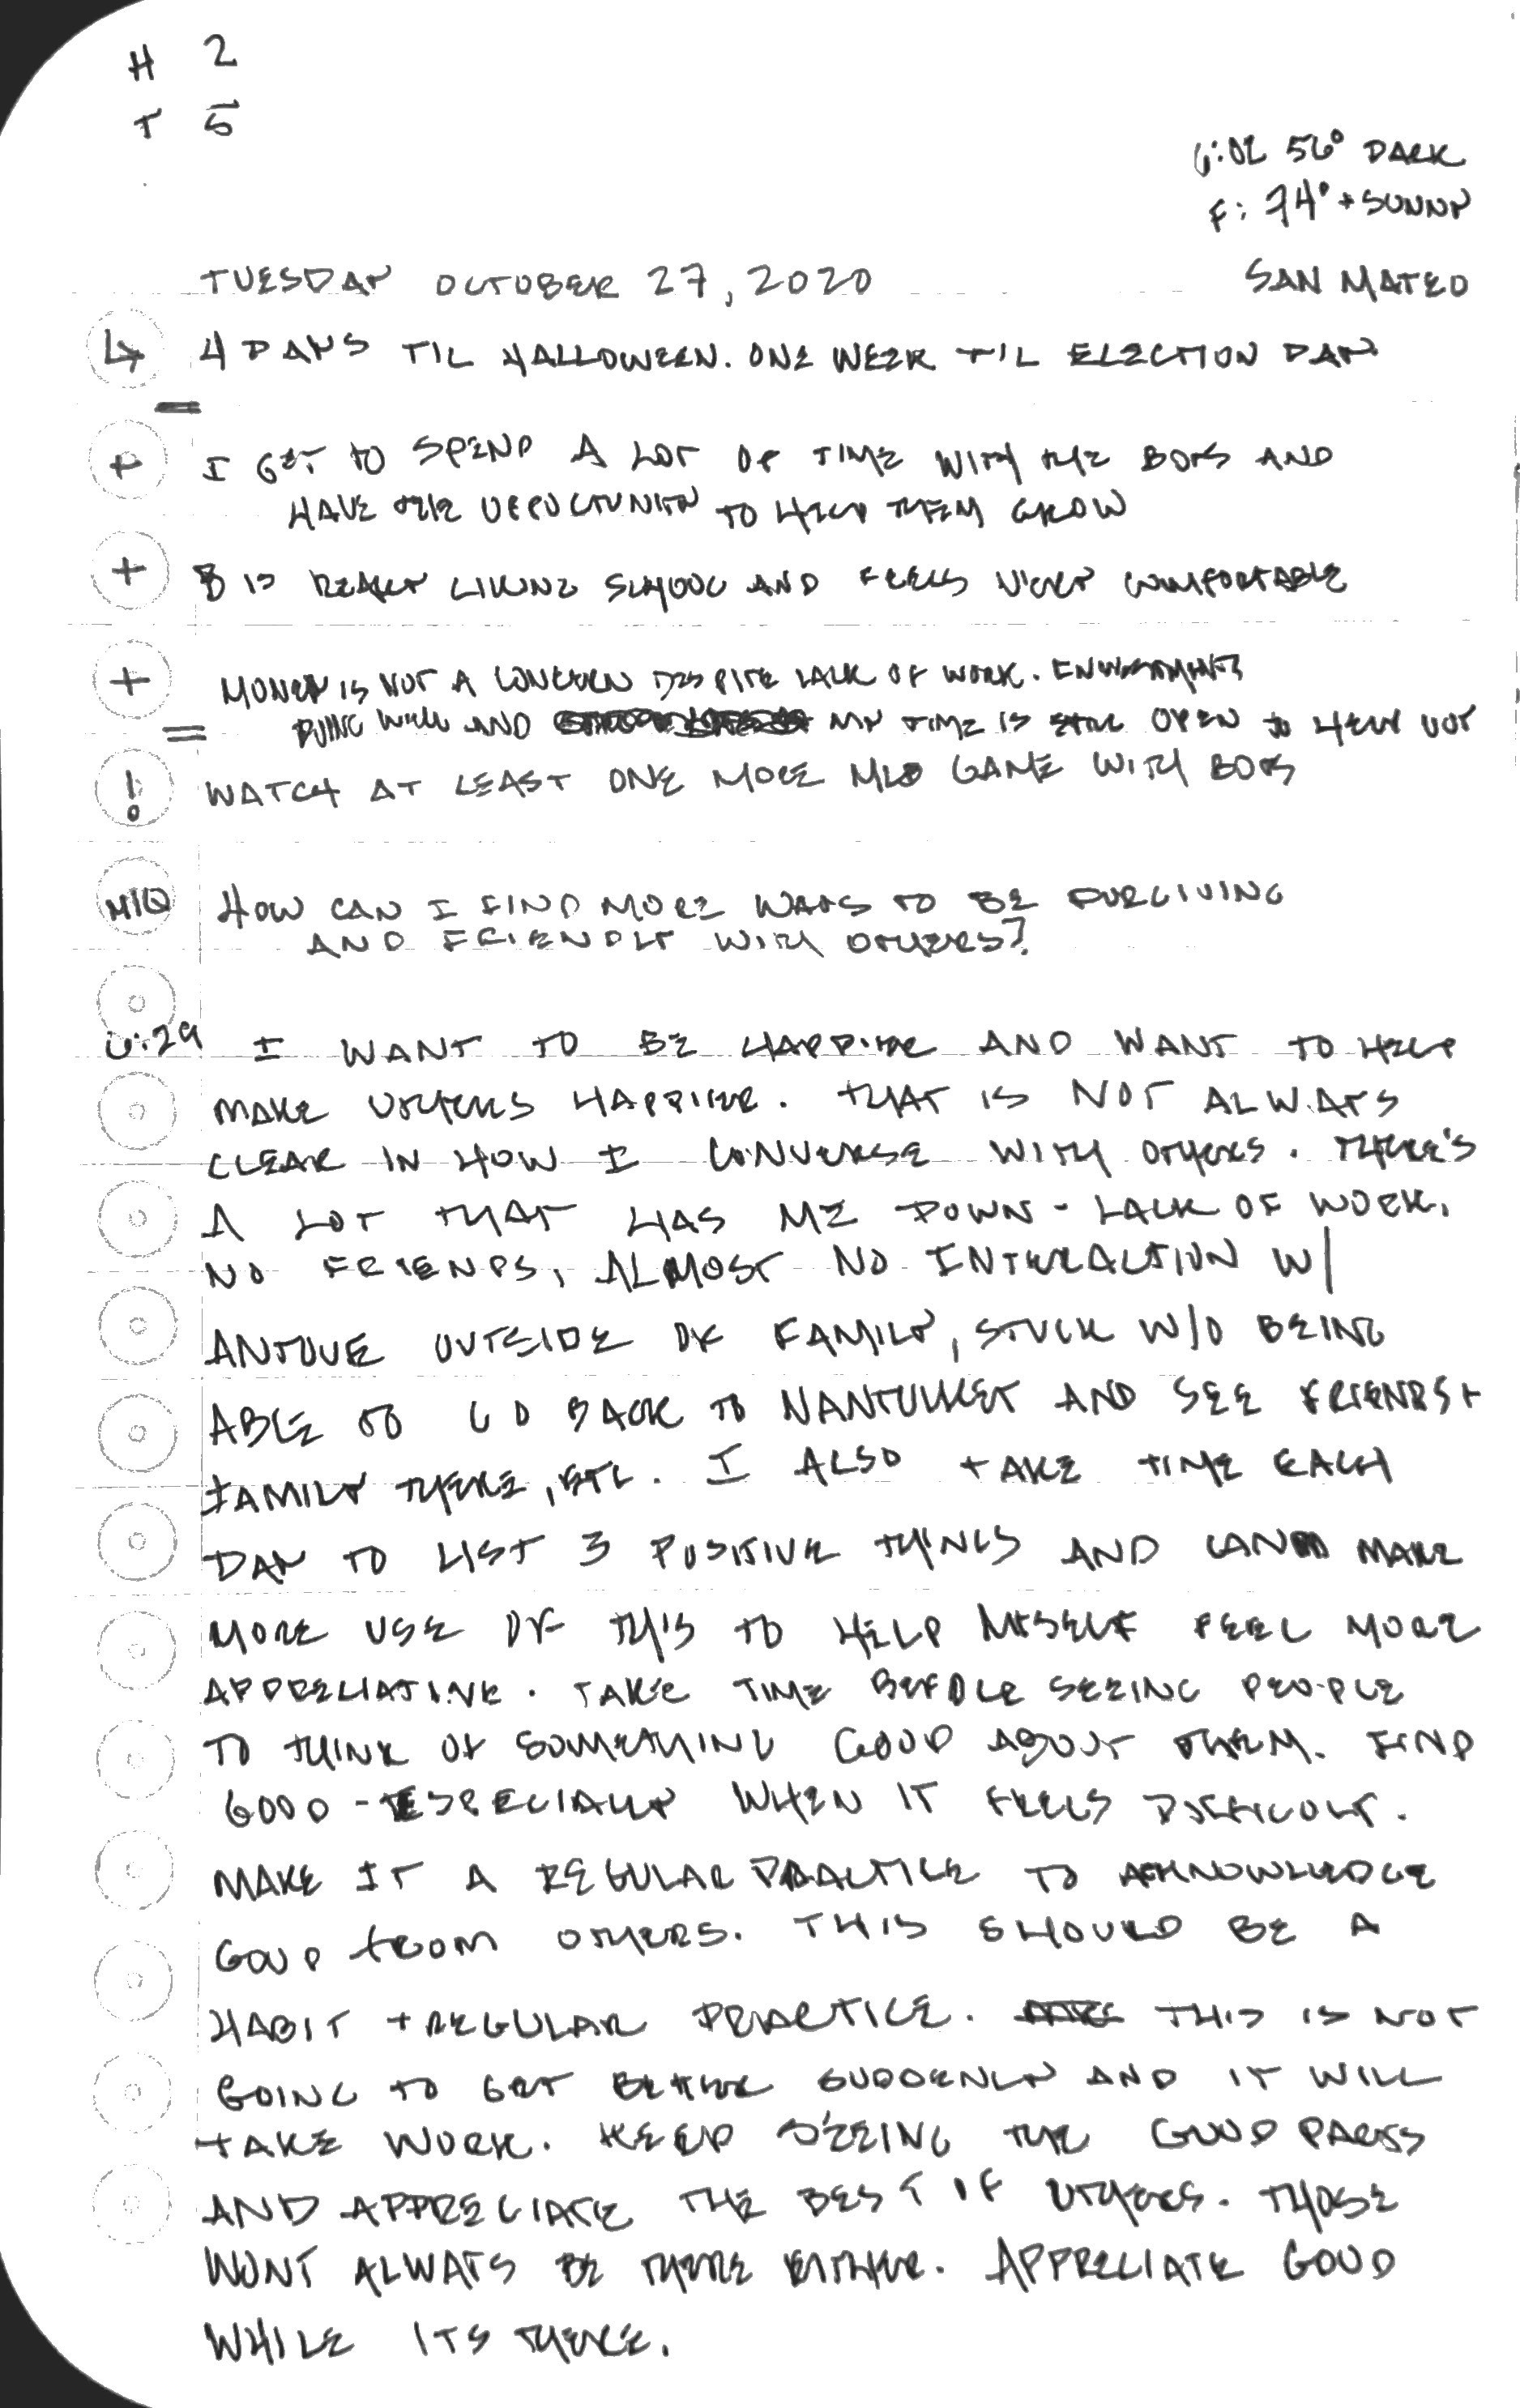 H 2
T 5
6:02 56° DARK
F: 74° + SUNNY
TUESDAY OCTOBER 27, 2020 SAN MATEO
4 DAYS TIL HALLOWEEN. ONE WEEK TIL ELECTION DAY
+ I GET TO SPEND A LOT OF TIME WITH THE BOYS AND
HAVE THE OPPORTUNITY TO HELP THEM GROW
+ B IS REALLY LIKING SCHOOL AND FEELS VERY COMFORTABLE
+ MONEY IS NOT A CONCERN DESPITE LACK OF WORK.
DOING WELL AND MY TIME IS STILL OPEN TO HELP OUT
! WATCH AT LEAST ONE MORE MLB GAME WITH BOYS
HOW CAN I FIND MORE WAYS TO BE FORGIVING
AND FRIENDLY WITH OTHERS?
6:29 I WANT TO BE HAPPIER AND WANT TO HELP
MAKE OTHERS HAPPIER. THAT IS NOT ALWAYS
CLEAR IN HOW I CONVERSE WITH OTHERS. THERE'S
A LOT THAT HAS ME DOWN - LACK OF WORK,
NO FRIENDS, ALMOST NO INTERACTION W/
ANYONE OUTSIDE OF FAMILY, STUCK W/O BEING
ABLE TO GO BACK TO NANTUCKET AND SEE FRIENDS +
FAMILY THERE, ETC. I ALSO TAKE TIME EACH
DAY TO LIST 3 POSITIVE THINGS AND CAN MAKE
MORE USE OF THIS TO HELP MYSELF FEEL MORE
APPRECIATIVE. TAKE TIME BEFORE SEEING PEOPLE
TO THINK OF SOMETHING GOOD ABOUT THEM. FIND
GOOD - ESPECIALLY WHEN IT FEELS DIFFICULT.
MAKE IT A REGULAR PRACTICE TO ACKNOWLEDGE
GOOD FROM OTHERS. THIS SHOULD BE A
HABIT + REGULAR PRACTICE. THIS IS NOT
GOING TO GET BETTER SUDDENLY AND IT WILL
TAKE WORK. KEEP SEEING THE GOOD PARTS
AND APPRECIATE THE BEST OF OTHERS. THOSE
WONT ALWAYS BE THERE EITHER. APPRECIATE GOOD
WHILE ITS THERE.